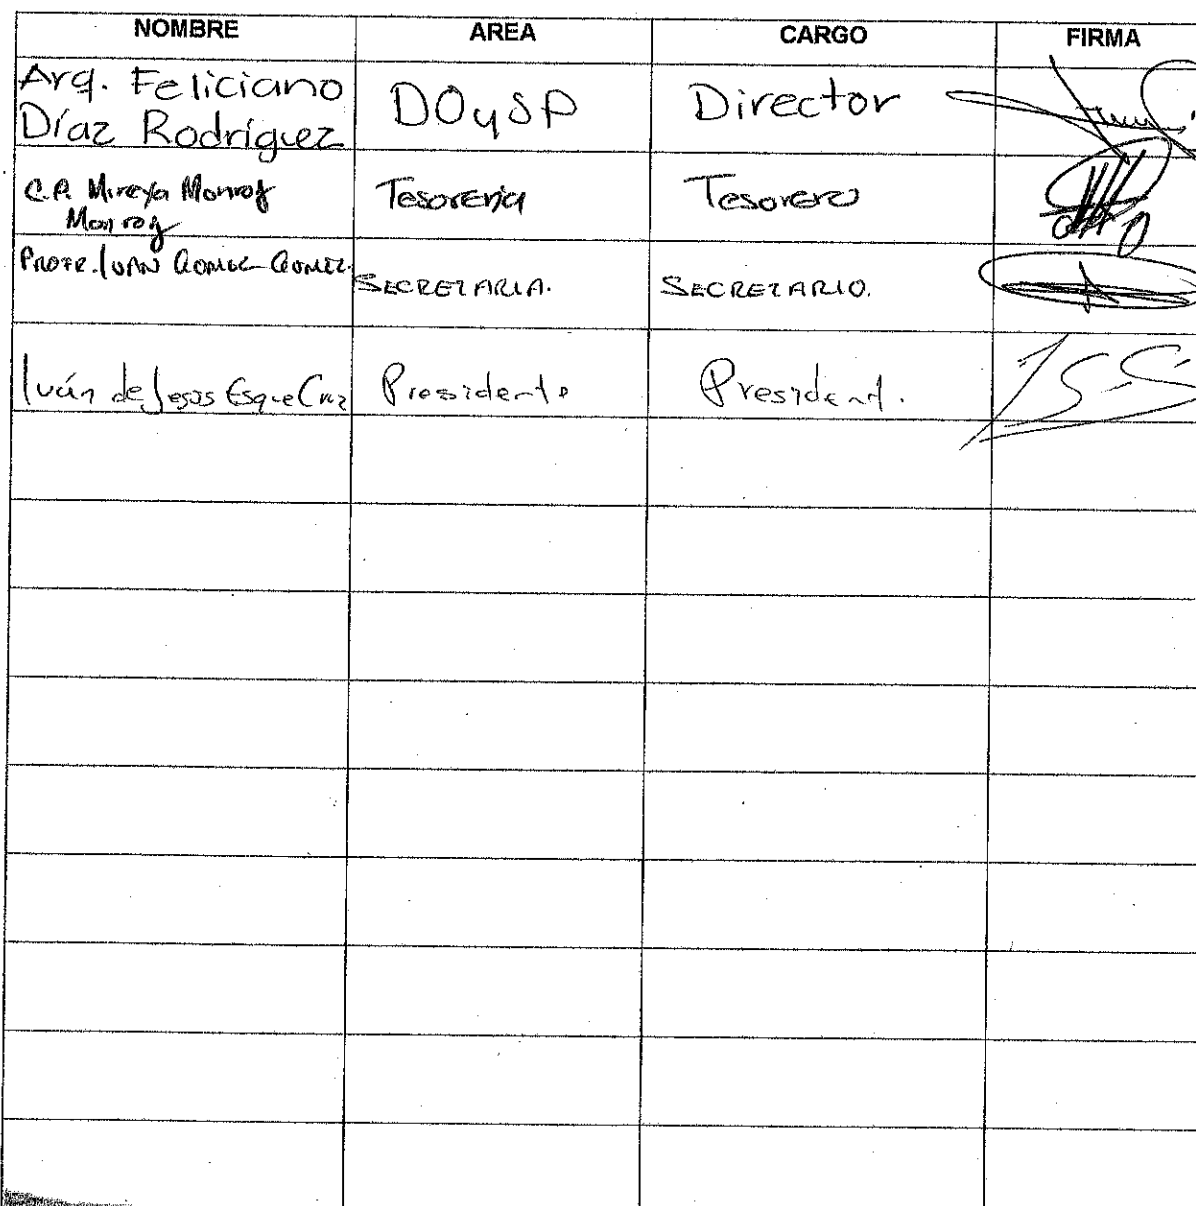 NOMBRE AREA CARGO FIRMA
Arq. Feliciano
Díaz Rodríguez DOySP Director
C.P. Mireya Monroy
Monroy Tesorería Tesorero
PROFR. IVAN GOMEZ GOMEZ. SECRETARIA. SECRETARIO.
Iván de Jesús Esque Cruz Presidente President.